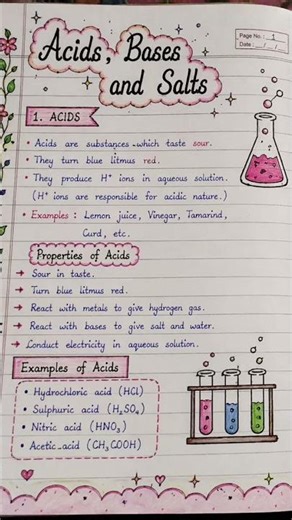 Page No.: 1
Date: __/__/__
Acids, Bases
and Salts
1. ACIDS
• Acids are substances which taste sour.
• They turn blue litmus red.
• They produce H⁺ ions in aqueous solution.
(H⁺ ions are responsible for acidic nature.)
• Examples: Lemon juice, Vinegar, Tamarind,
Curd, etc.
Properties of Acids
→ Sour in taste.
→ Turn blue litmus red.
→ React with metals to give hydrogen gas.
→ React with bases to give salt and water.
→ Conduct electricity in aqueous solution.
Examples of Acids
• Hydrochloric acid (HCl)
• Sulphuric acid (H₂SO₄)
• Nitric acid (HNO₃)
• Acetic acid (CH₃COOH)